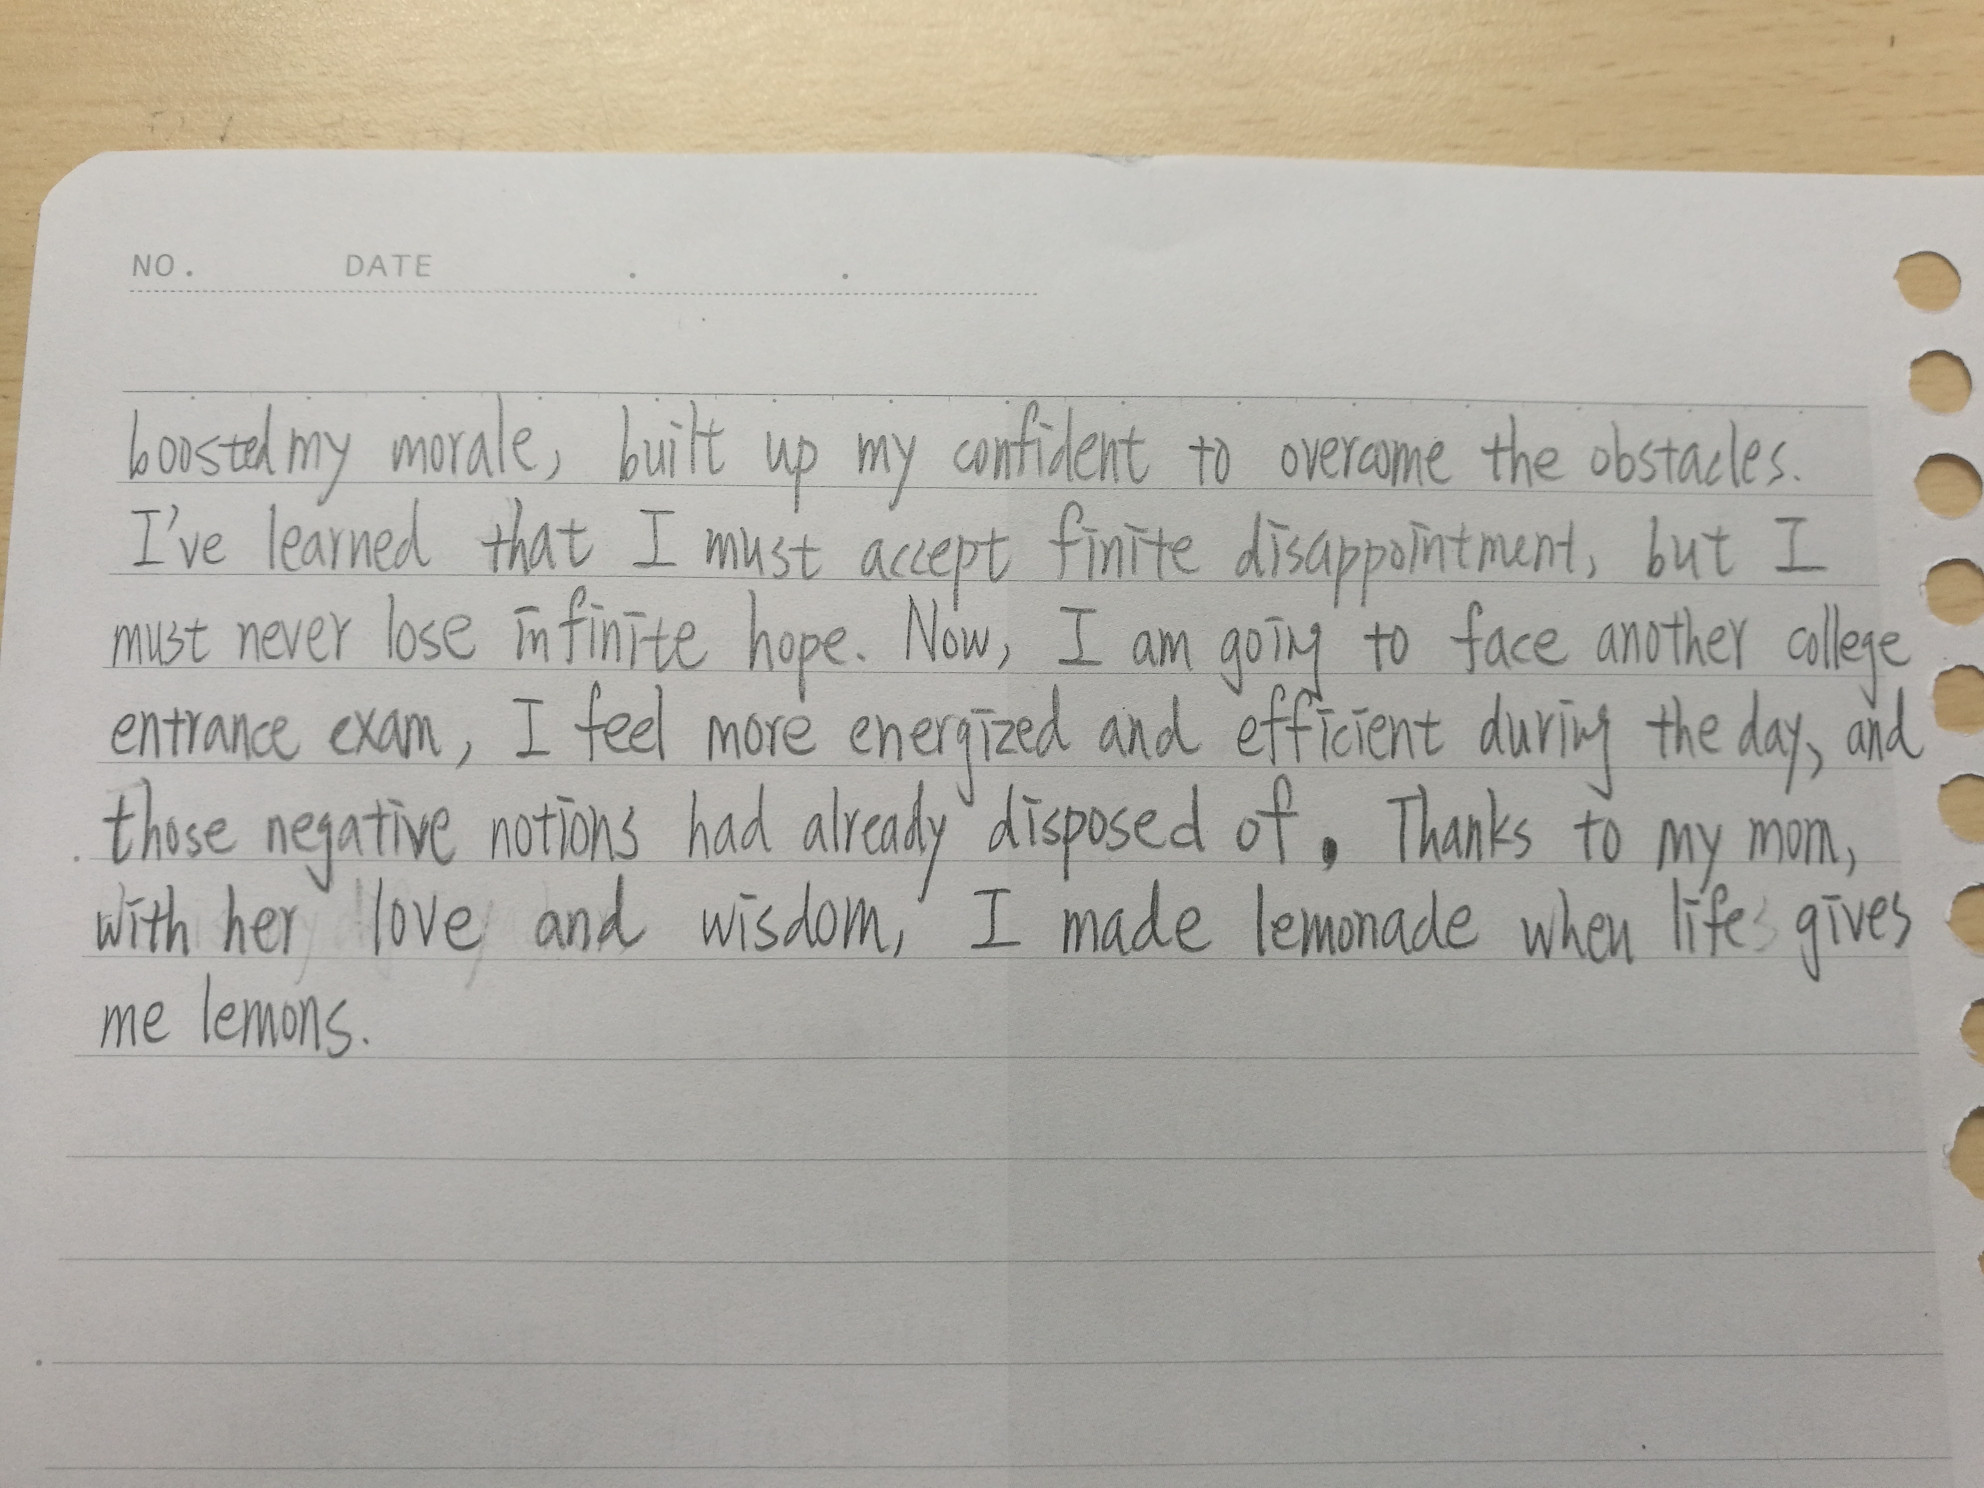 NO. DATE . .
boosted my morale, built up my confident to overcome the obstacles.
I've learned that I must accept finite disappointment, but I
must never lose infinite hope. Now, I am going to face another college
entrance exam, I feel more energized and efficient during the day, and
those negative notions had already disposed of. Thanks to my mom,
with her love and wisdom, I made lemonade when life gives
me lemons.